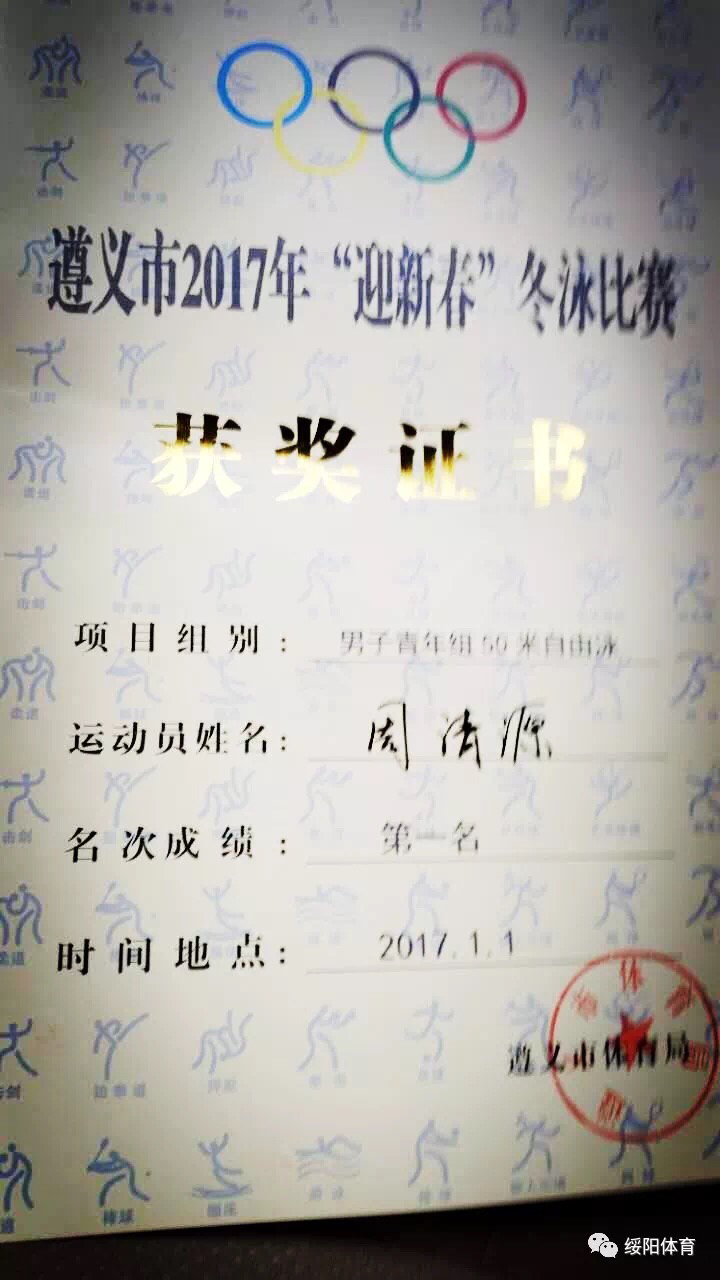 遵义市2017年“迎新春”冬泳比赛
获奖证书
项目组别： 男子青年组50米自由泳
运动员姓名： 周清源
名次成绩： 第一名
时间地点： 2017.1.1
遵义市体育局
绥阳体育